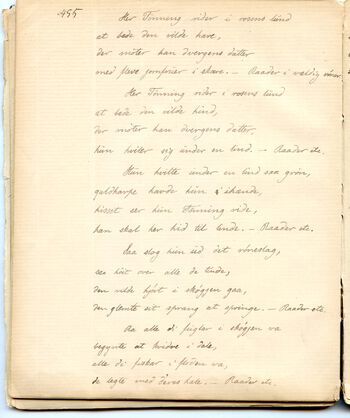 455
Her Tonning rider i rosens lund
at bede den vilde hare,
der möter han dvergens datter
med fleve jomfruer i skare. – Raader i vel
Her Tonning rider i rosens lund
at bede den vilde hind,
der möter han dvergens datter
hun hviler sig under en lind. – Raader etc.
Hun hvilte under en lind saa grön,
guldharpe havde hun i hænde,
hisset ser hun Tonning ride,
han skal her hid til lende. – Raader etc.
Saa slog hun ud det
saa höit over alle de lunde,
den vilde hjort i skogjen gaa,
den glemte sit sprang at springe. – Raader etc.
Aa alle di fugler i skogjen va
begynte at kvidre i dale,
alle di fiskar i floden va,
de legte med deres hale. – Raader etc.